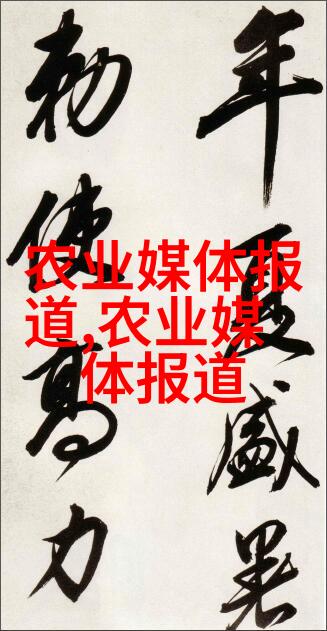 年夏盛暑
勅使高力
农业媒体报
道,农业媒
体报道